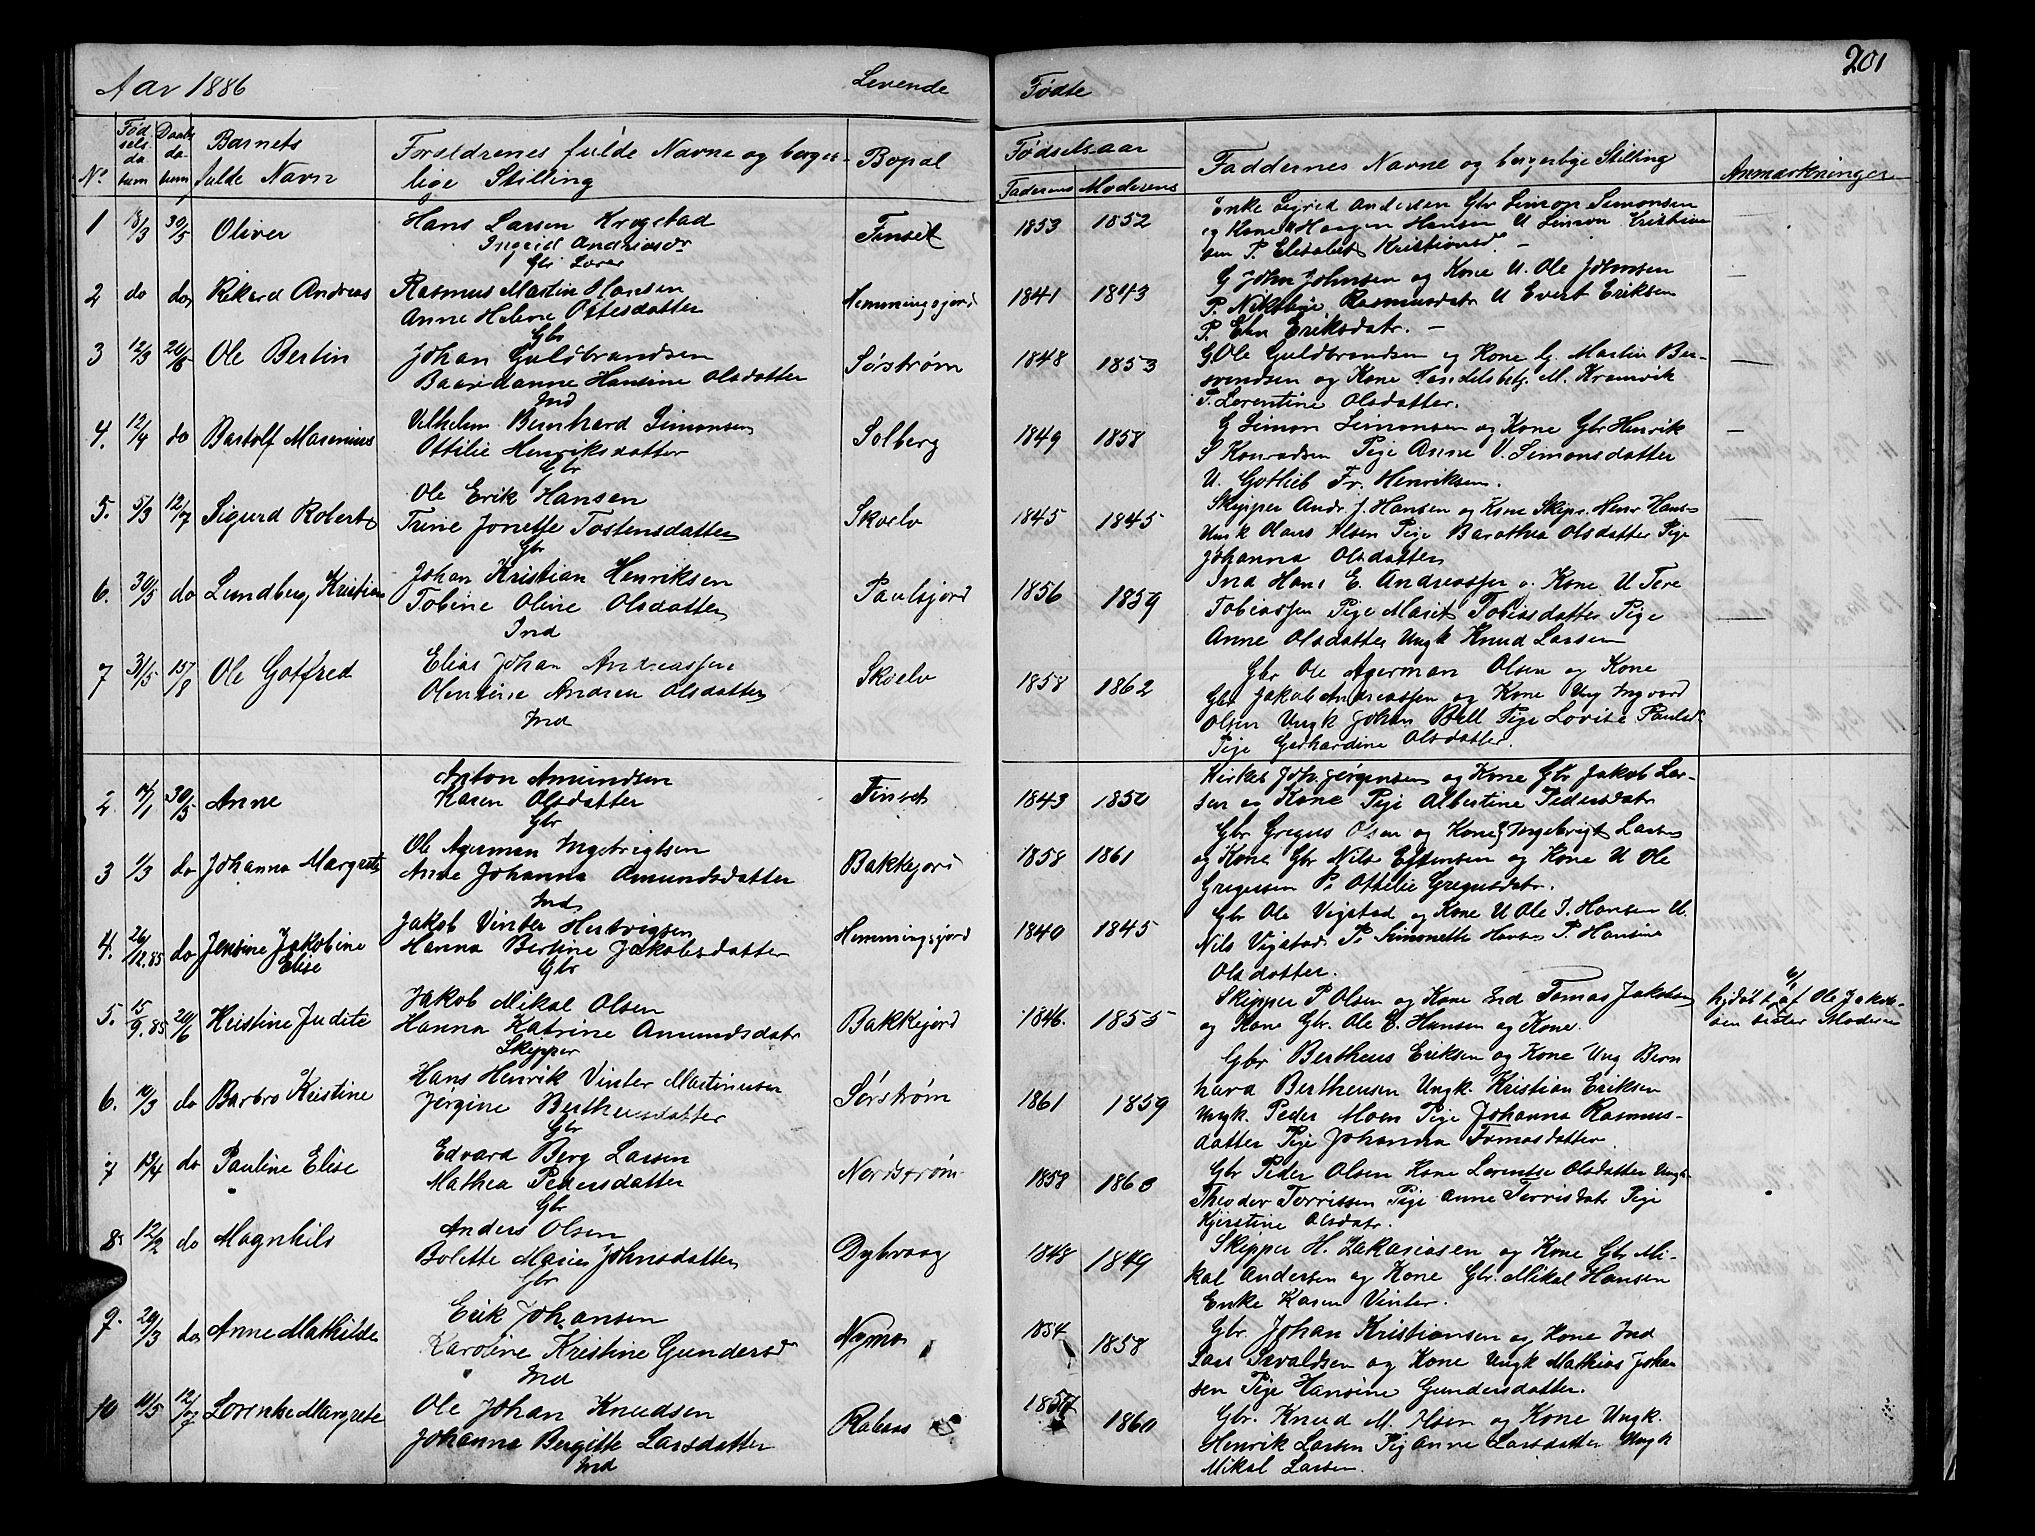 201
Aar 1886 Levende Fødte
No Fødselsdatum Daabsdatum Barnets fulde Navn Forældrenes fulde Navne og borgerlige Stilling Bopæl Fødselsaar Faderens Moderens Faddernes Navne og borgerlige Stilling Anmærkninger
1 18/3 30/5 Oliver
Hans Larsen Krogstad
Ingrid Andreasdr
Finset 1853 1852
Enke Sigrid Andersen Gbr Simon Simonsen
og Kone Haagen Hansen U Simon Kristian
sen P. Elisabet Kristiansd. —
2 do do Rikard Andreas
Rasmus Martin Hansen
Anne Helene Ottesdatter
Gbr
Hemmingsjord 1841 1843
G John Johnsen og Kone U. Ole Johnsen
P. Rasmusdatr U Evert Eriksen
P. Elen Eriksdatr. —
3 12/3 20/6 Ole Bertin
Johan Guldbrandsen
Hansine Olsdatter
Ind
Sørstrøm 1848 1853 —
G Ole Guldbrandsen og Kone G. Martin Ber-
svendsen og Kone Handelsbetj. M. Kramvik
P. Lorentine Olsdatter.
4. 12/4 do Bastolf Marenius
Vilhelm Bernhard Simonsen
Ottilie Henriksdatter
Gbr
Solberg 1849 1858 —
G Simon Simonsen og Kone Gbr Henrik
S Konradsen Pige Anne V. Simonsdatter
U. Gotlieb Fr. Henriksen.
5. 5/3 12/7 Sigurd Robert
Ole Erik Hansen
Trine Jonette Tostensdatter
Gbr
Skoelv 1845 1845 —
Skipper Andr. J. Hansen og Kone Skipr. Henr Hans-
Ungk Hans Olsen Pige Barothea Olsdatter Pige
Johanna Olsdatter
6. 30/5 do Lundberg Kristian
Johan Kristian Henriksen
Tobine Oline Olsdatter
Ind
Paulsjord 1856 1859 —
Ind Hans E. Andreassen o. Kone U Tere
Tobiassen Pige Marit Tobiasdatter Pige
Anne Olsdatter Ungk Knud Larsen
7 31/5 15/8 Ole Gotfred
Elias Johan Andreassen
Olentine Andrea Olsdatter
Ind
Skoelv 1858 1862
Gbr Ole Agerman Olsen og Kone
Gbr Jakob Andreassen og Kone Ung Ingvard
Olsen Ungk Johan Bell Pige Lovise Paulsd
Pige Gerhardine Olsdatter.
2. 30/5 Anne
Anton Amundsen
Karen Olsdatter
Gbr
Finset 1843 1850
Kirkes. Joh. Jørgensen og Kone Gbr Jakob Lar-
sen og Kone Pige Albertine Pedersdatr
3 1/3 do Johanna Margrete
Ole Agerman Ingebrigtsen
Anne Johanna Amundsdatter
Ind
Bakkejord 1858 1861
Gbr Gregus Olsen og Kone Ingebrigt Larsen
og Kone Gbr Nils Eftensen og Kone U Ole
Gregussen P. Ottilie Gregusdatr.
4. 26/12.85 do Jensine Jakobine Elise
Jakob Vinter Hertvigsen
Hanna Bertine Jakobsdatter
Gbr
Hemmingsjord 1840 1845
Gbr Ole Vigstad og Kone U Ole J. Hansen U.
Nils Vigstad P. Simonette Hansen P. Hansine
Olsdatter.
5. 15/9.85 20/6 Kristine Judite
Jakob Mikal Olsen
Hanna Katrine Amundsdatr
Skipper
Bakkejord 1846. 1855
Skipper P Olsen og Kone Ind Tomas Jakobsen
og Kone Gbr. Ole E. Hansen og Kone.
hjdøbt af Ole Jakob-
sen Moderen
6. 10/3 do Barbro Kristine
Hans Henrik Vinter Martinusen
Jørgine Bertheusdatter
Gbr
Sørstrøm 1861 1859
Gbr Bertheus Eriksen og Kone Ung Bern
hard Bertheusen Ungk Kristian Eriksen
Ungk. Peder Moen Pige Johanna Rasmus-
datter Pige Johanna Tomasdatter.
7 19/4 do Pauline Elise
Edvard Berg Larsen
Mathea Pedersdatter
Gbr
Nordstrøm 1858 1860
Gbr Peder Olsen Kone Lorentse Olsdatter Ungk
Theodor Torrissen Pige Anne Torrisdatr Pige
Kjerstine Olsdatr.
8. 12/2 do Magnhild
Anders Olsen
Bolette Marie Johnsdatter
Gbr
Dybvaag 1848 1849
Skipper H. Zakariasen og Kone Gbr Mi-
kal Andersen og Kone Gbr. Mikal Hansen
Enke Karen Vinter.
9. 20/3 do Anne Mathilde
Erik Johansen
Karoline Kristine Gundersd
Ind
Nymo 1854 1858
Gbr. Johan Kristiansen og Kone Ind
Lars Osvaldsen og Kone Ungk Mathias Johan
sen Pige Hansine Gundersdatter.
10 10/5 12/7 Lorentse Margrete
Ole Johan Knudsen
Johanna Bergitte Larsdatter
Ind
Rabaas 1857 1860
Gbr. Knud M. Olsen og Kone Ungk.
Henrik Larsen Pig Anne Larsdatter Ungk
Mikal Larsen.